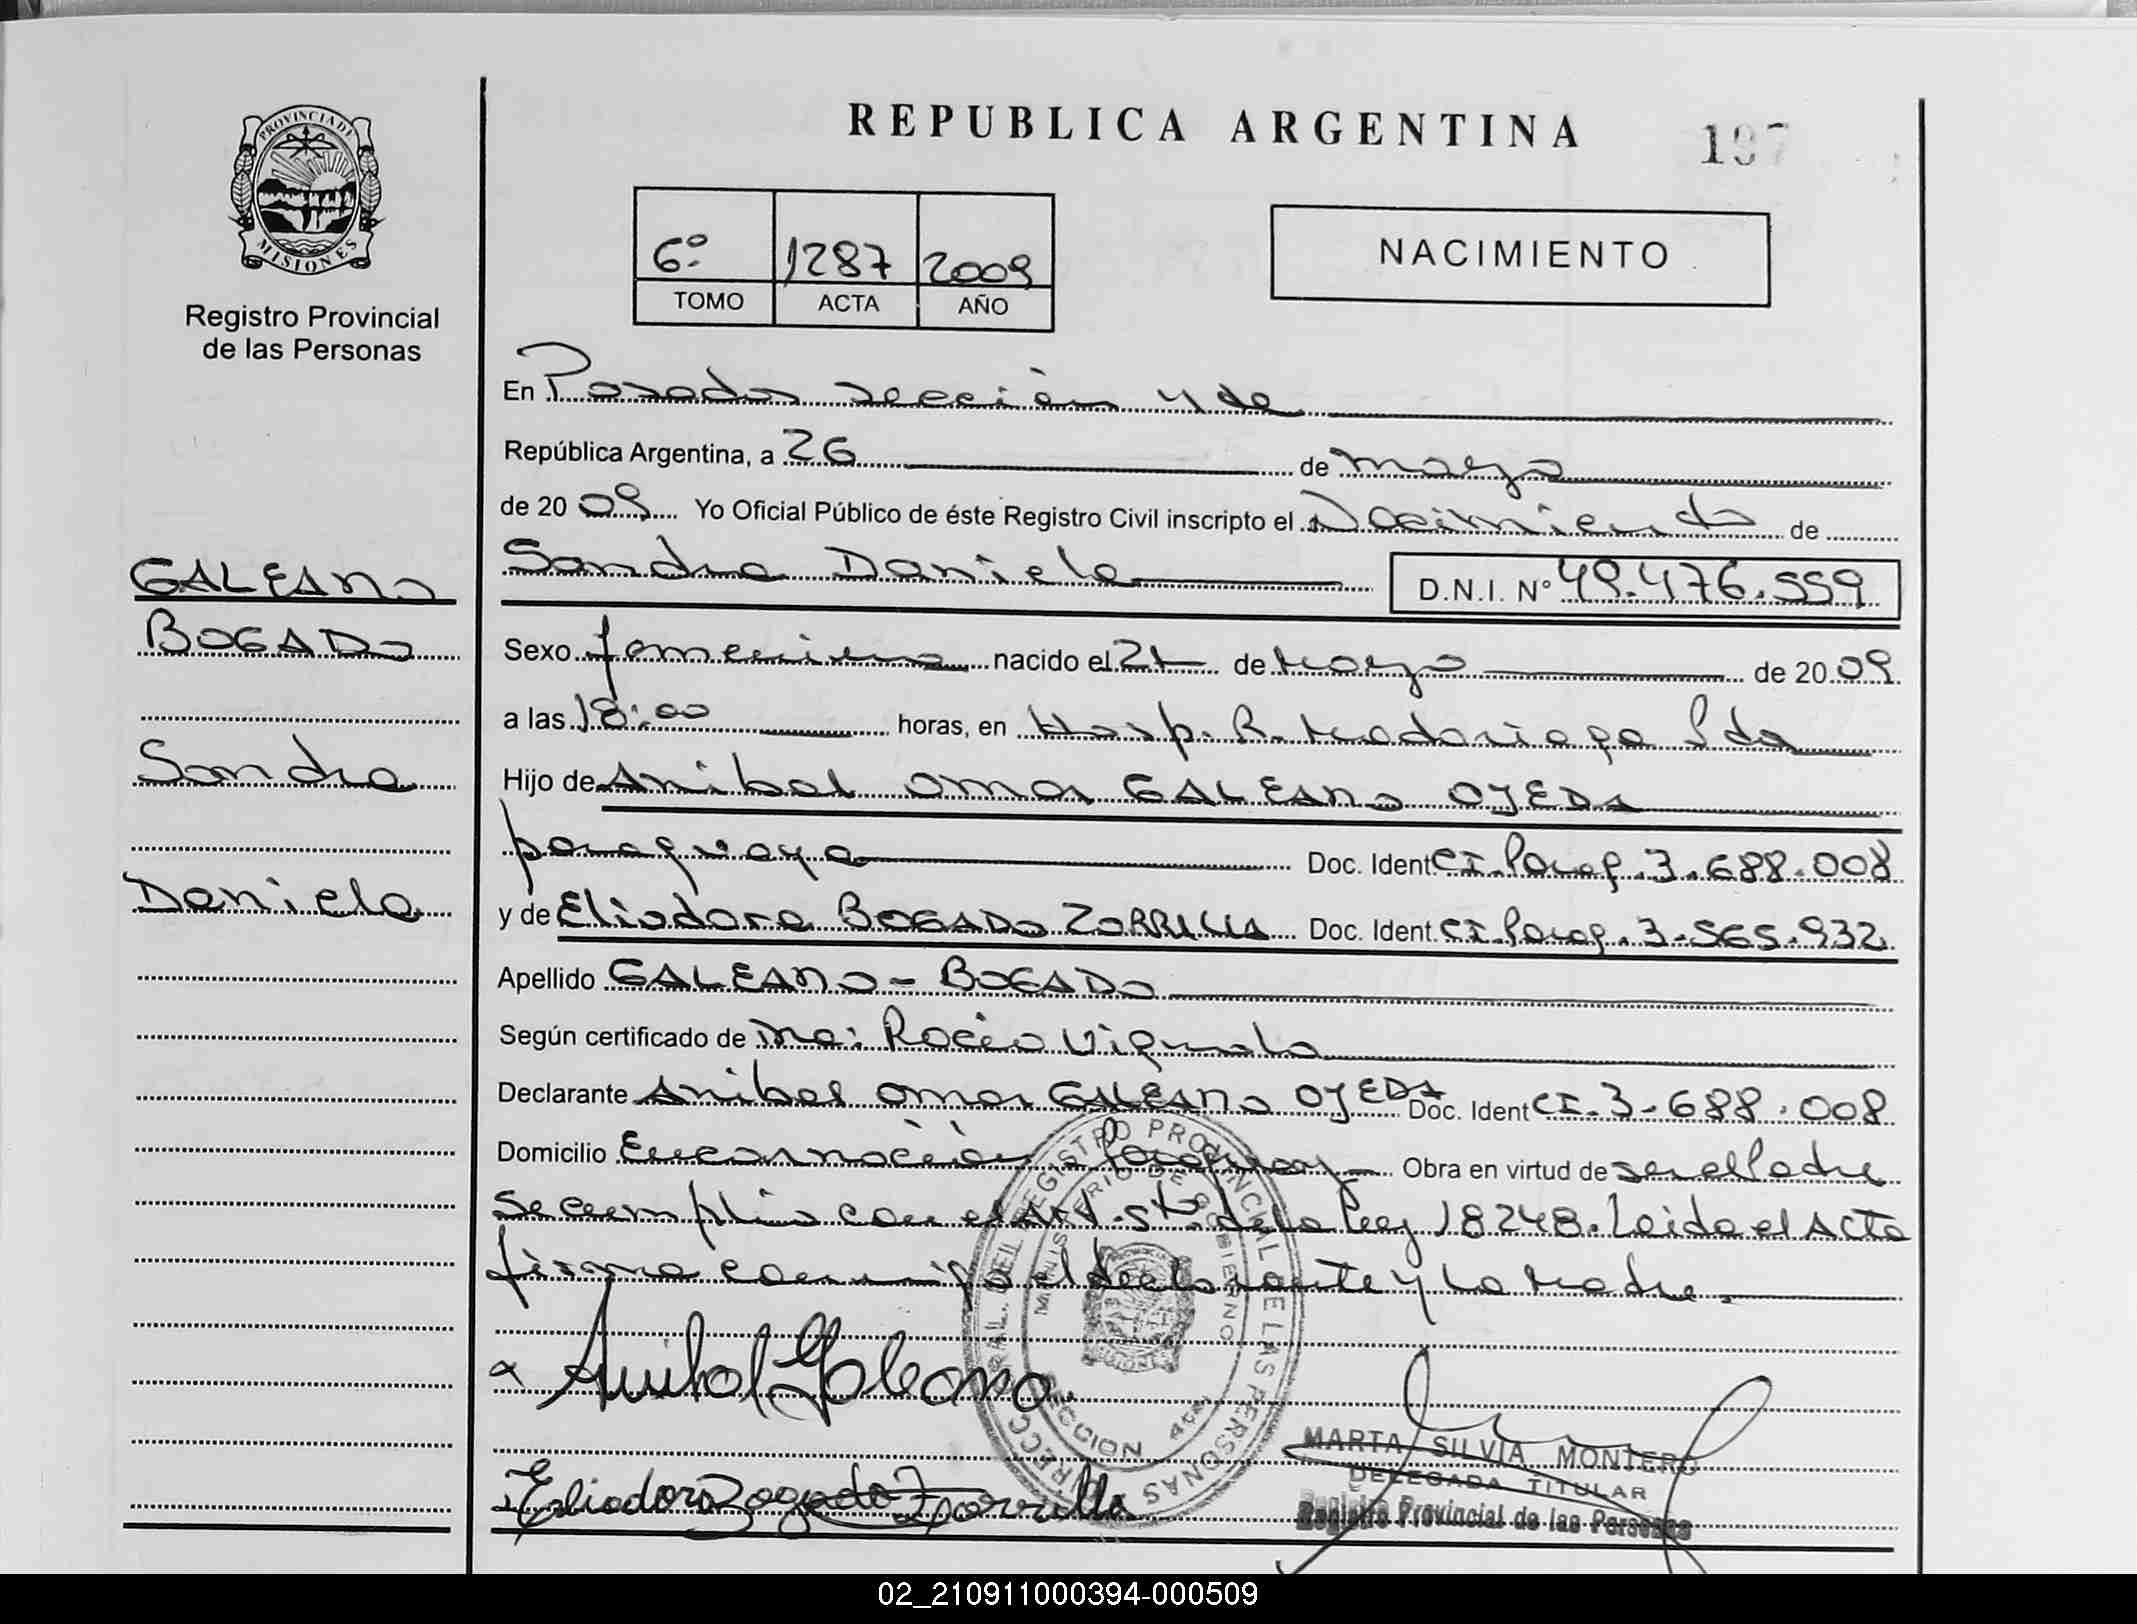 REPUBLICA ARGENTINA
197
PROVINCIA DE
MISIONES
Registro Provincial
de las Personas
6º 1287 2009
TOMO ACTA AÑO
NACIMIENTO
En Posadas sección 4 de
República Argentina, a 26 de mayo
de 2009 Yo Oficial Público de éste Registro Civil inscripto el Nacimiento de
Sandra Daniela D.N.I. Nº 49.476.559
GALEANO
BOGADO
Sandra
Daniela
Sexo femenino nacido el 21 de Mayo de 2009
a las 18:00 horas, en Hosp. R. Madariaga Pdas
Hijo de Anibal Omar GALEANO OJEDA
paraguaya Doc. Ident CI. Parag. 3.688.008
y de Eliodora BOGADO ZORRILLA Doc. Ident. CI. Parag. 3.565.932
Apellido GALEANO - BOGADO
Según certificado de Dra: Rocío Vignola
Declarante Anibal Omar GALEANO OJEDA Doc. Ident CI. 3.688.008
Domicilio Encarnación Paraguay Obra en virtud de ser el Padre
se cumplió con el Art. 5to. de la Ley 18248. Leida el Acta
firma conmigo el declarante y la Madre.
Anibal Galeano
Eliodora Bogado Zorrilla
MARTA SILVIA MONTERO
DELEGADA TITULAR
Registro Provincial de las Personas
02_210911000394-000509